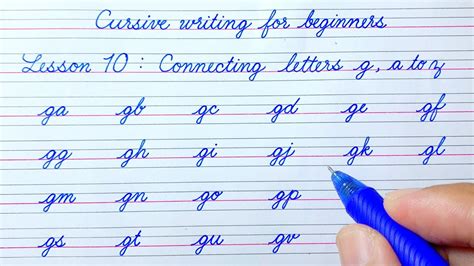 Cursive writing for beginners
Lesson 10 : Connecting letters g, a to z
ga gb gc gd ge gf
gg gh gi gj gk gl
gm gn go gp
gs gt gu gv